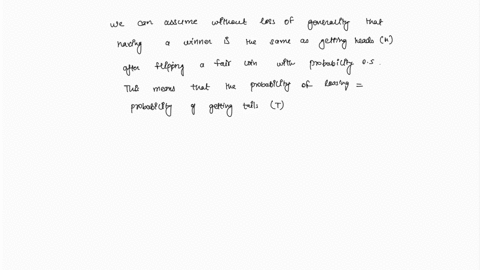 we can assume without loss of generality that
having a winner is the same as getting heads (H)
after flipping a fair coin with probability 0.5.
This means that the probability of loosing =
probability of getting tails (T)